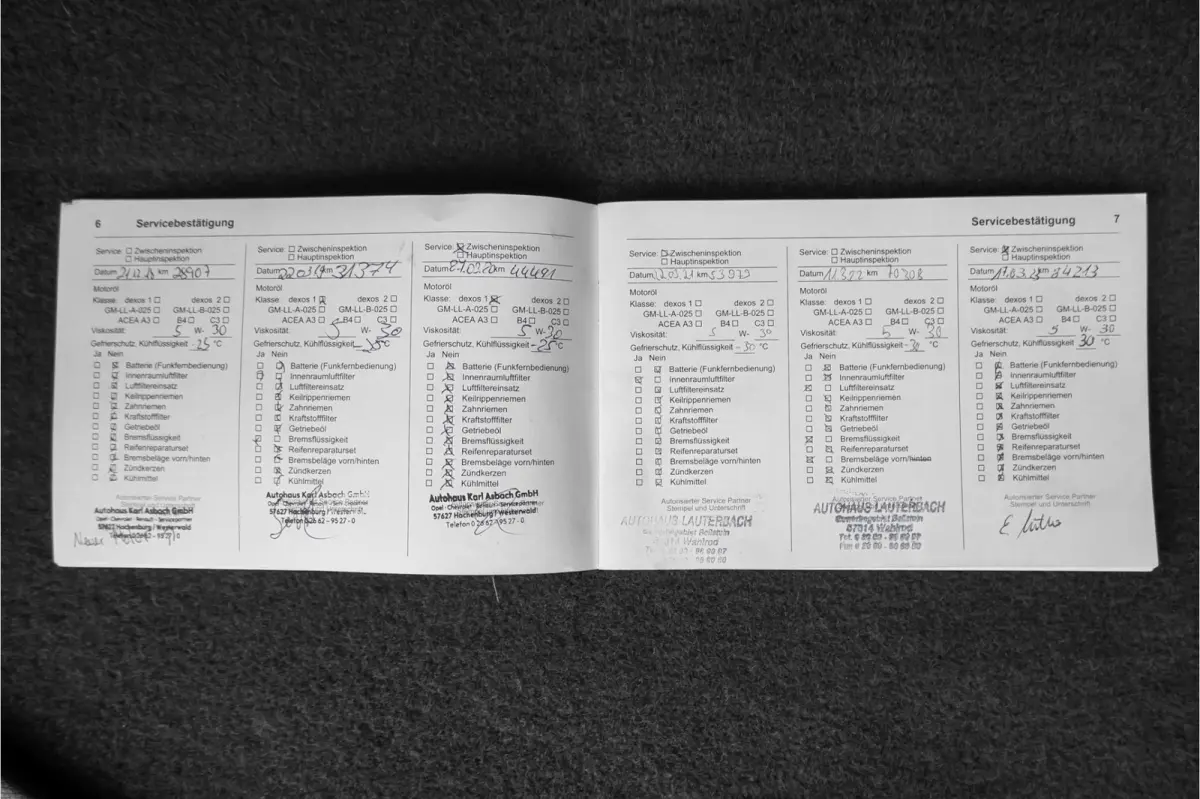 6 Servicebestätigung
Service: ☐ Zwischeninspektion
☐ Hauptinspektion
Datum 21.12.18 km 28907
Motoröl
Klasse: dexos 1 ☐ dexos 2 ☐
GM-LL-A-025 ☐ GM-LL-B-025 ☐
ACEA A3 ☐ B4 ☐ C3 ☐
Viskosität: 5 W- 30
Gefrierschutz, Kühlflüssigkeit - 25 °C
Ja Nein
☐ ☒ Batterie (Funkfernbedienung)
☐ ☒ Innenraumluftfilter
☐ ☒ Luftfiltereinsatz
☐ ☒ Keilrippenriemen
☐ ☒ Zahnriemen
☐ ☒ Kraftstofffilter
☐ ☒ Getriebeöl
☐ ☒ Bremsflüssigkeit
☐ ☒ Reifenreparaturset
☐ ☒ Bremsbeläge vorn/hinten
☐ ☒ Zündkerzen
☐ ☒ Kühlmittel
Autorisierter Service Partner
Stempel und Unterschrift
Autohaus Karl Asbach GmbH
Opel - Chevrolet - Renault - Servicepartner
57627 Hachenburg / Westerwald
Telefon 0 26 62 - 95 27 - 0
Service: ☐ Zwischeninspektion
☐ Hauptinspektion
Datum 22.03.19 km 31374
Motoröl
Klasse: dexos 1 ☒ dexos 2 ☐
GM-LL-A-025 ☐ GM-LL-B-025 ☐
ACEA A3 ☐ B4 ☐ C3 ☐
Viskosität: 5 W- 30
Gefrierschutz, Kühlflüssigkeit - 35 °C
Ja Nein
☐ ☒ Batterie (Funkfernbedienung)
☒ ☐ Innenraumluftfilter
☐ ☒ Luftfiltereinsatz
☐ ☒ Keilrippenriemen
☐ ☒ Zahnriemen
☐ ☒ Kraftstofffilter
☐ ☒ Getriebeöl
☒ ☐ Bremsflüssigkeit
☐ ☒ Reifenreparaturset
☐ ☒ Bremsbeläge vorn/hinten
☐ ☒ Zündkerzen
☐ ☒ Kühlmittel
Autohaus Karl Asbach GmbH
57627 Hachenburg / Westerwald
Telefon 0 26 62 - 95 27 - 0
Service: ☒ Zwischeninspektion
☐ Hauptinspektion
Datum 27.02.20 km 44491
Motoröl
Klasse: dexos 1 ☒ dexos 2 ☐
GM-LL-A-025 ☐ GM-LL-B-025 ☐
ACEA A3 ☐ B4 ☐ C3 ☐
Viskosität: 5 W- 30
Gefrierschutz, Kühlflüssigkeit - 25 °C
Ja Nein
☐ ☒ Batterie (Funkfernbedienung)
☐ ☒ Innenraumluftfilter
☐ ☒ Luftfiltereinsatz
☐ ☒ Keilrippenriemen
☐ ☒ Zahnriemen
☐ ☒ Kraftstofffilter
☐ ☒ Getriebeöl
☐ ☒ Bremsflüssigkeit
☐ ☒ Reifenreparaturset
☐ ☒ Bremsbeläge vorn/hinten
☐ ☒ Zündkerzen
☐ ☒ Kühlmittel
Autohaus Karl Asbach GmbH
Opel - Chevrolet - Renault - Servicepartner
57627 Hachenburg / Westerwald
Telefon 0 26 62 - 95 27 - 0
Servicebestätigung 7
Service: ☐ Zwischeninspektion
☐ Hauptinspektion
Datum 22.03.21 km 53973
Motoröl
Klasse: dexos 1 ☐ dexos 2 ☐
GM-LL-A-025 ☐ GM-LL-B-025 ☐
ACEA A3 ☐ B4 ☐ C3 ☐
Viskosität: 5 W- 30
Gefrierschutz, Kühlflüssigkeit - 30 °C
Ja Nein
☐ ☒ Batterie (Funkfernbedienung)
☒ ☐ Innenraumluftfilter
☐ ☒ Luftfiltereinsatz
☐ ☒ Keilrippenriemen
☐ ☒ Zahnriemen
☐ ☒ Kraftstofffilter
☐ ☒ Getriebeöl
☐ ☒ Bremsflüssigkeit
☐ ☒ Reifenreparaturset
☐ ☒ Bremsbeläge vorn/hinten
☐ ☒ Zündkerzen
☐ ☒ Kühlmittel
Autorisierter Service Partner
Stempel und Unterschrift
AUTOHAUS LAUTERBACH
Service: ☐ Zwischeninspektion
☐ Hauptinspektion
Datum 11.3.22 km 70308
Motoröl
Klasse: dexos 1 ☐ dexos 2 ☐
GM-LL-A-025 ☐ GM-LL-B-025 ☐
ACEA A3 ☐ B4 ☐ C3 ☐
Viskosität: 5 W- 30
Gefrierschutz, Kühlflüssigkeit - 30 °C
Ja Nein
☐ ☒ Batterie (Funkfernbedienung)
☐ ☒ Innenraumluftfilter
☒ ☐ Luftfiltereinsatz
☐ ☒ Keilrippenriemen
☐ ☒ Zahnriemen
☐ ☒ Kraftstofffilter
☐ ☒ Getriebeöl
☒ ☐ Bremsflüssigkeit
☐ ☒ Reifenreparaturset
☒ ☐ Bremsbeläge vorn/hinten
☐ ☒ Zündkerzen
☐ ☒ Kühlmittel
Autorisierter Service Partner
AUTOHAUS LAUTERBACH
Service: ☒ Zwischeninspektion
☐ Hauptinspektion
Datum 17.03.23 km 84213
Motoröl
Klasse: dexos 1 ☐ dexos 2 ☐
GM-LL-A-025 ☐ GM-LL-B-025 ☐
ACEA A3 ☐ B4 ☐ C3 ☐
Viskosität: 5 W- 30
Gefrierschutz, Kühlflüssigkeit 30 °C
Ja Nein
☐ ☒ Batterie (Funkfernbedienung)
☐ ☒ Innenraumluftfilter
☐ ☒ Luftfiltereinsatz
☐ ☒ Keilrippenriemen
☐ ☒ Zahnriemen
☐ ☒ Kraftstofffilter
☐ ☒ Getriebeöl
☐ ☒ Bremsflüssigkeit
☐ ☒ Reifenreparaturset
☐ ☒ Bremsbeläge vorn/hinten
☐ ☒ Zündkerzen
☐ ☒ Kühlmittel
Autorisierter Service Partner
Stempel und Unterschrift